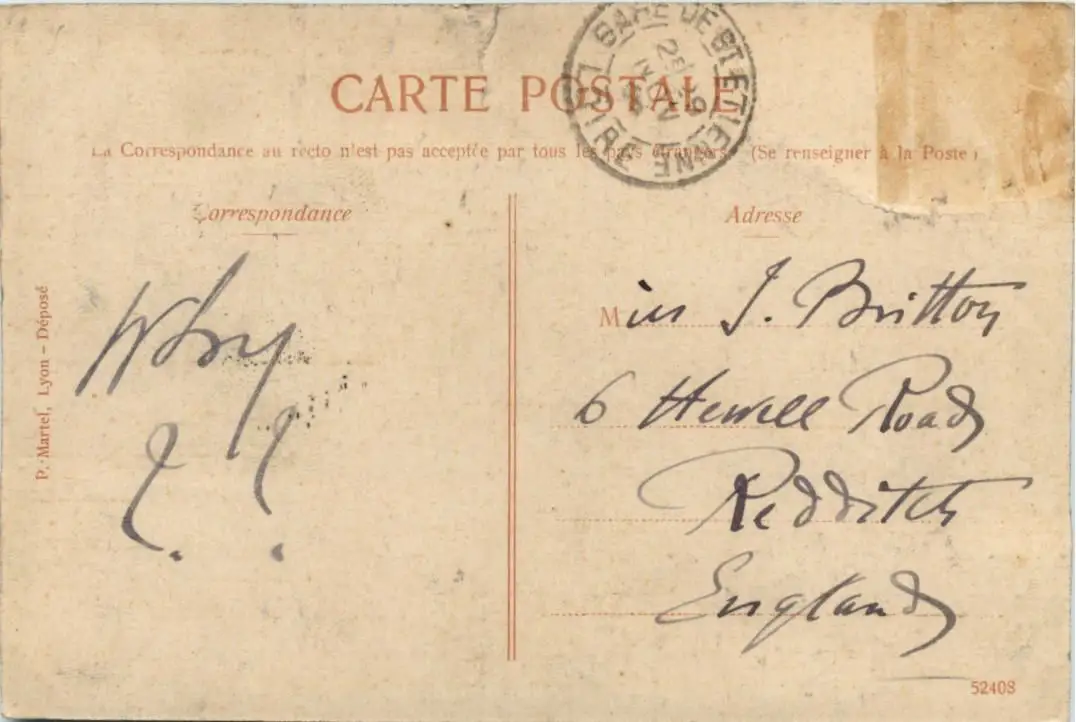 GARE DE ST ETIENNE
LOIRE
CARTE POSTALE
La Correspondance au recto n'est pas acceptée par tous les pays étrangers. (Se renseigner à la Poste)
Correspondance
Adresse
P. Martel, Lyon – Déposé
Why
? ?
Miss J. Britton
6 Hewell Road
Redditch
England
52408